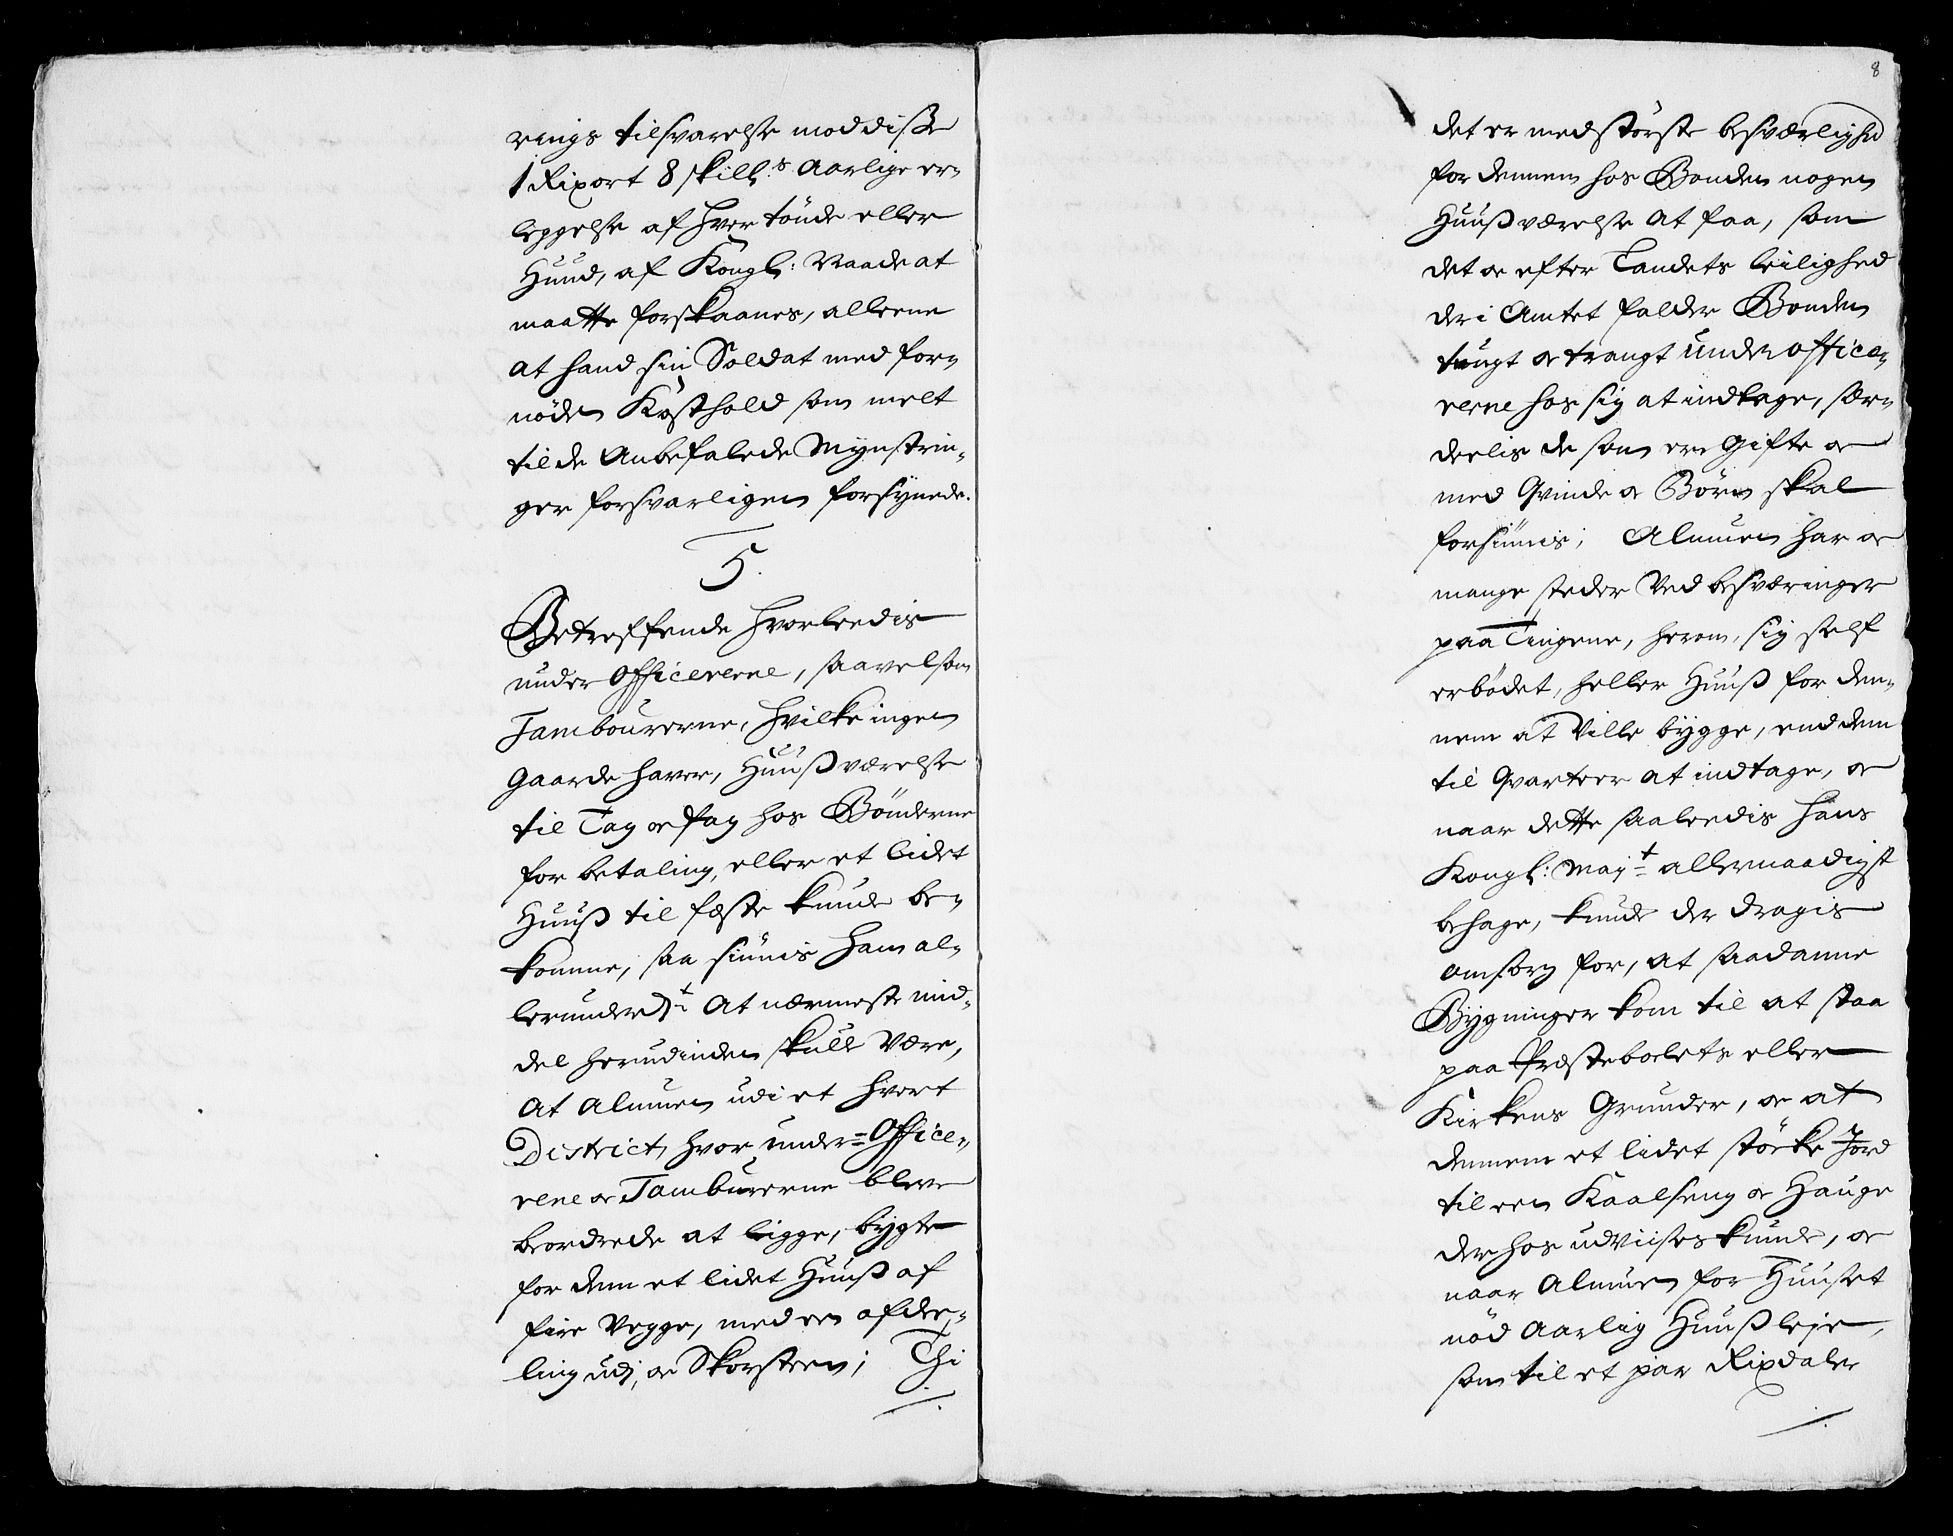 rings tilsvarelse mod disse
1 Rixort 8 skill:s Aarlige er-
leggelse af hver tönde eller
Huud, af Kongl: Naade at
maatte forskaanes, alleene
at hand sin Soldat med for-
nöden Kosthold som melt
til de Anbefalede Mynstrin-
ger forsvarligen forsÿnede.
5.
Betreffende hvorleedis
under Officererne, saavelsom
Tambourerne, hvilke ingen
Gaarde haver, Huußværelse
til Tag og fag hos Bönderne
for betaling, eller et lidet
Huuß til fæste kunde be-
komme, saa siunis ham al-
lerunderd:t At nærmeste mid-
del herudinden skulle være,
At Almuen udi et hvert
District, hvor under-Office-
rene og Tambúrerne bleve
beordrede at ligge, bÿgte
for dem et lidet Huuß af
fire Vegge, med een afdee-
ling udj, og Skorsteen; Thi
8
det er med störste besværlighed
for dennem hos Bonden nogen
Huußværelse at faa, som
det og efter Landets leilighed
der i Amtet falder Bonden
tungt og trangt under office-
rerne hos sig at indtage, sær-
deelis de som ere Gifte og
med Qvinde og Börn skal
forsiunis; Almuen har og
mange steder Ved besværinger
paa Tingene, herom, sig self
erbödet, heller Huuß for den-
nem at Ville bÿgge, end dem
til Qvarteer at indtage, og
naar dette saaleedis Hans
Kongl: Maj:t allernaadigst
behage, kunde der dragis
omsorg for, at saadanne
Bÿgninger kom til at staa
paa Præstebolets eller
Kirkens Grunder, og at
dennem et lidet stöcke Jord
til een Kaalseng og Hauge
der hos udviises kunde, og
naar Almuen for Huuset
nöd Aarlig Huußleje,
som til et par Rixdaler